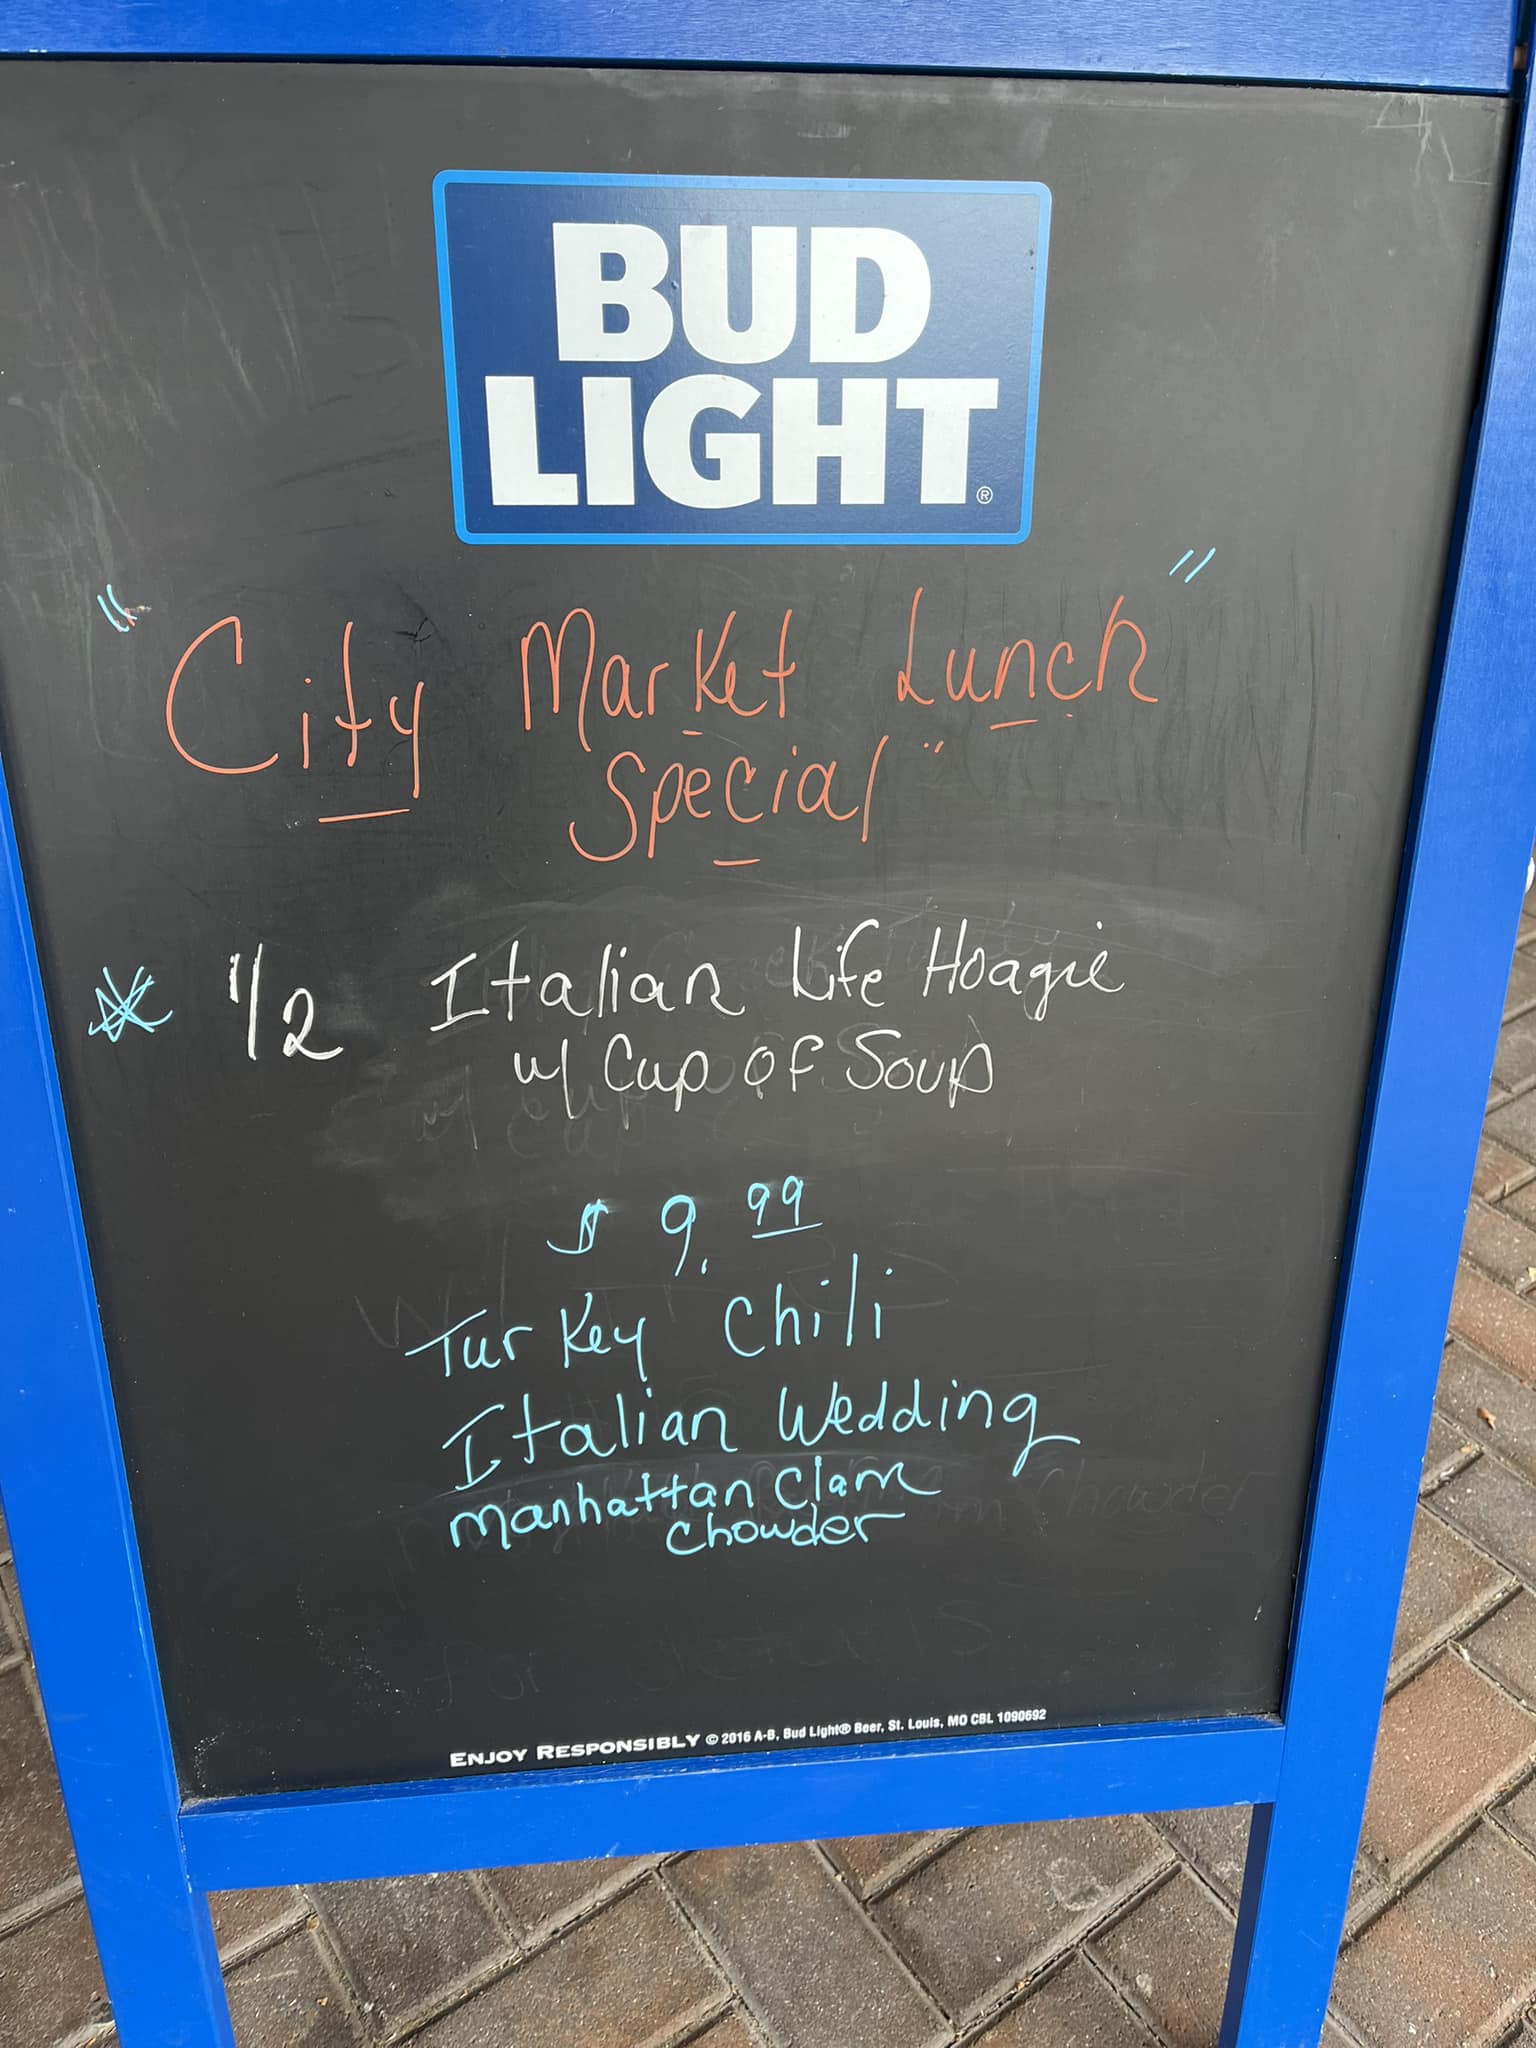 BUD
LIGHT®
"City Market Lunch"
Special"
* 1/2 Italian Life Hoagie
w/ Cup of Soup
$ 9.99
Turkey Chili
Italian Wedding
Manhattan Clam
Chowder
ENJOY RESPONSIBLY © 2016 A-B, Bud Light® Beer, St. Louis, MO CBL 1090692